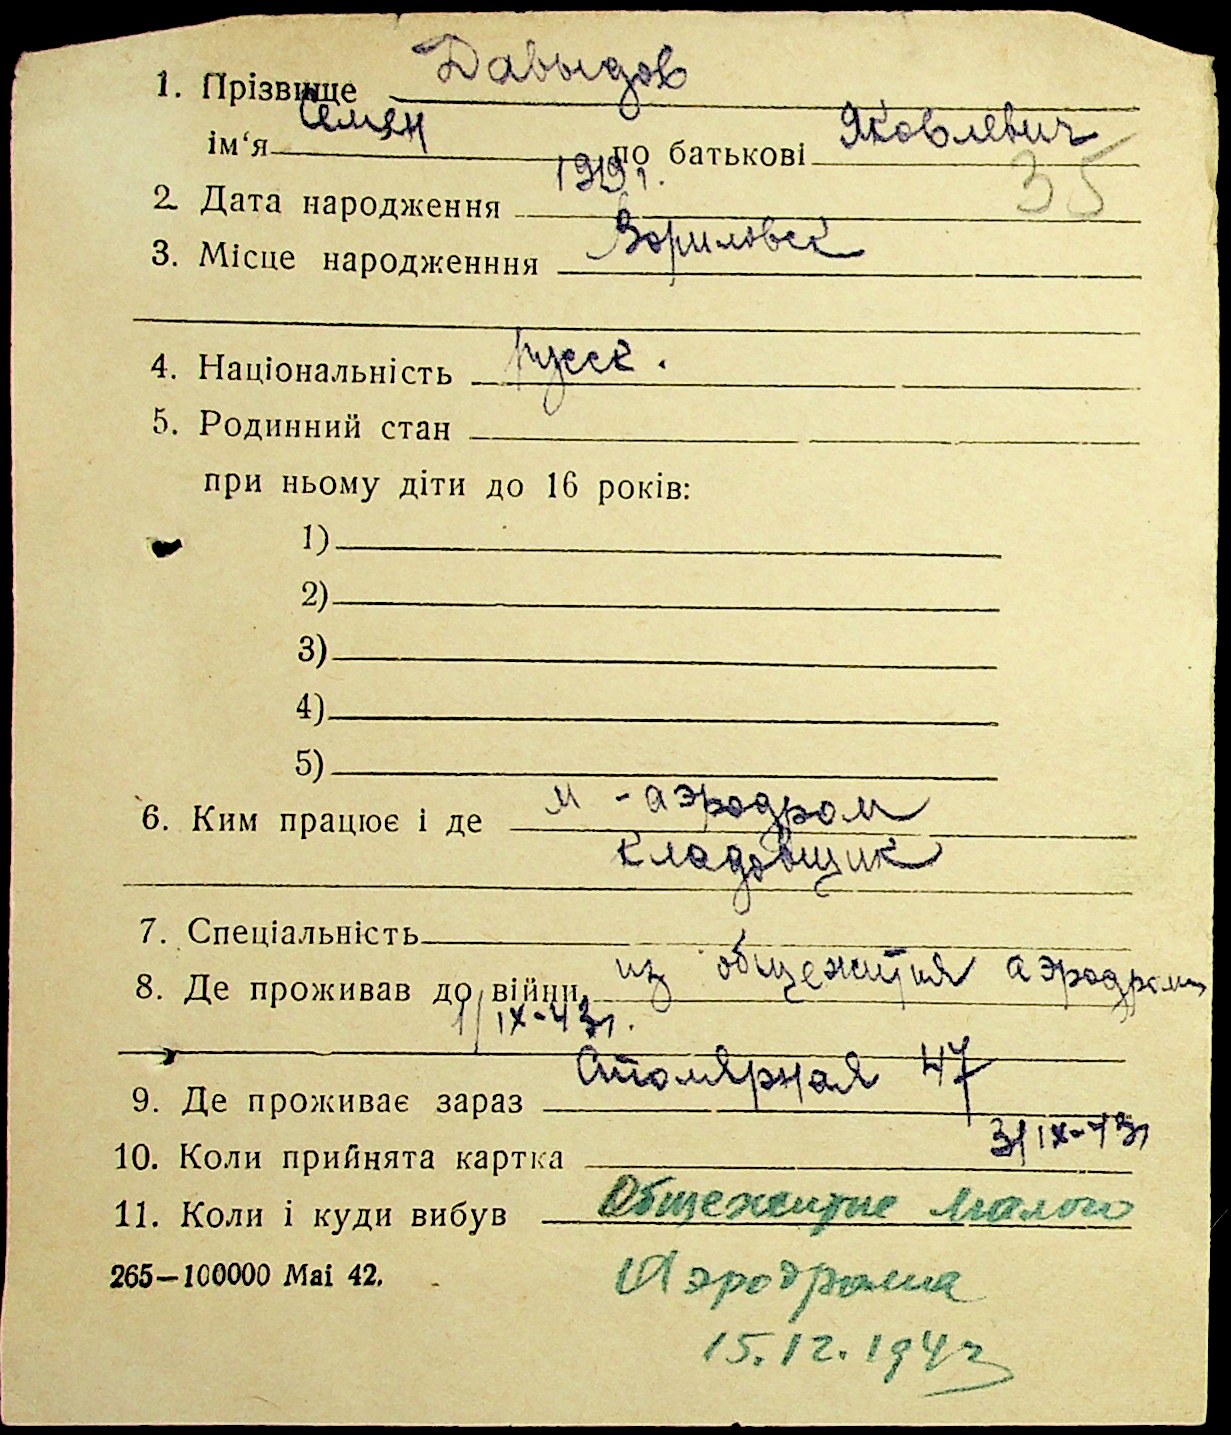 1. Прізвище Давыдов
ім‘я Семен по батькові Яковлевич
35
2. Дата народження 1919 г.
3. Місце народженння
4. Національність русск.
5. Родинний стан
при ньому діти до 16 років:
1)
2)
3)
4)
5)
6. Ким працює і де м - аэродром
кладовщик
7. Спеціальність
8. Де проживав до війни из общежития аэродрома
1/IX-43г.
9. Де проживає зараз Столярная 47
10. Коли прийнята картка 3/IX-43г
11. Коли і куди вибув Общежитие Малого
Аэродрома
265—100000 Mai 42.
15.12.194